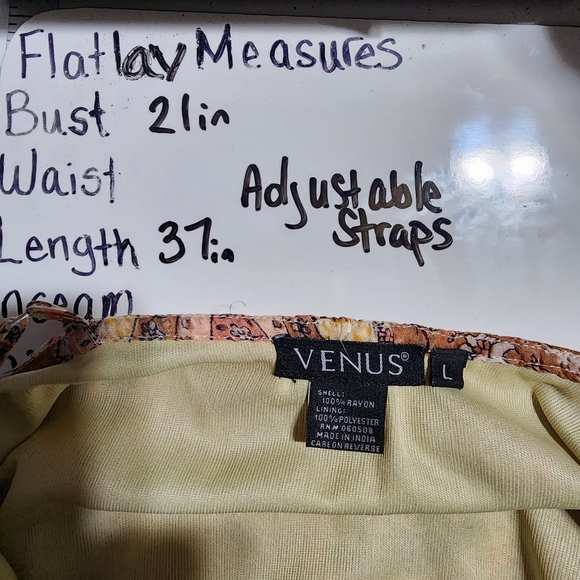 Flatlay Measures
Bust 21in
Waist
Adjustable
Straps
Length 37in
VENUS®
L
SHELL:
100% RAYON
LINING:
100% POLYESTER
RN# 060508
MADE IN INDIA
CARE ON REVERSE